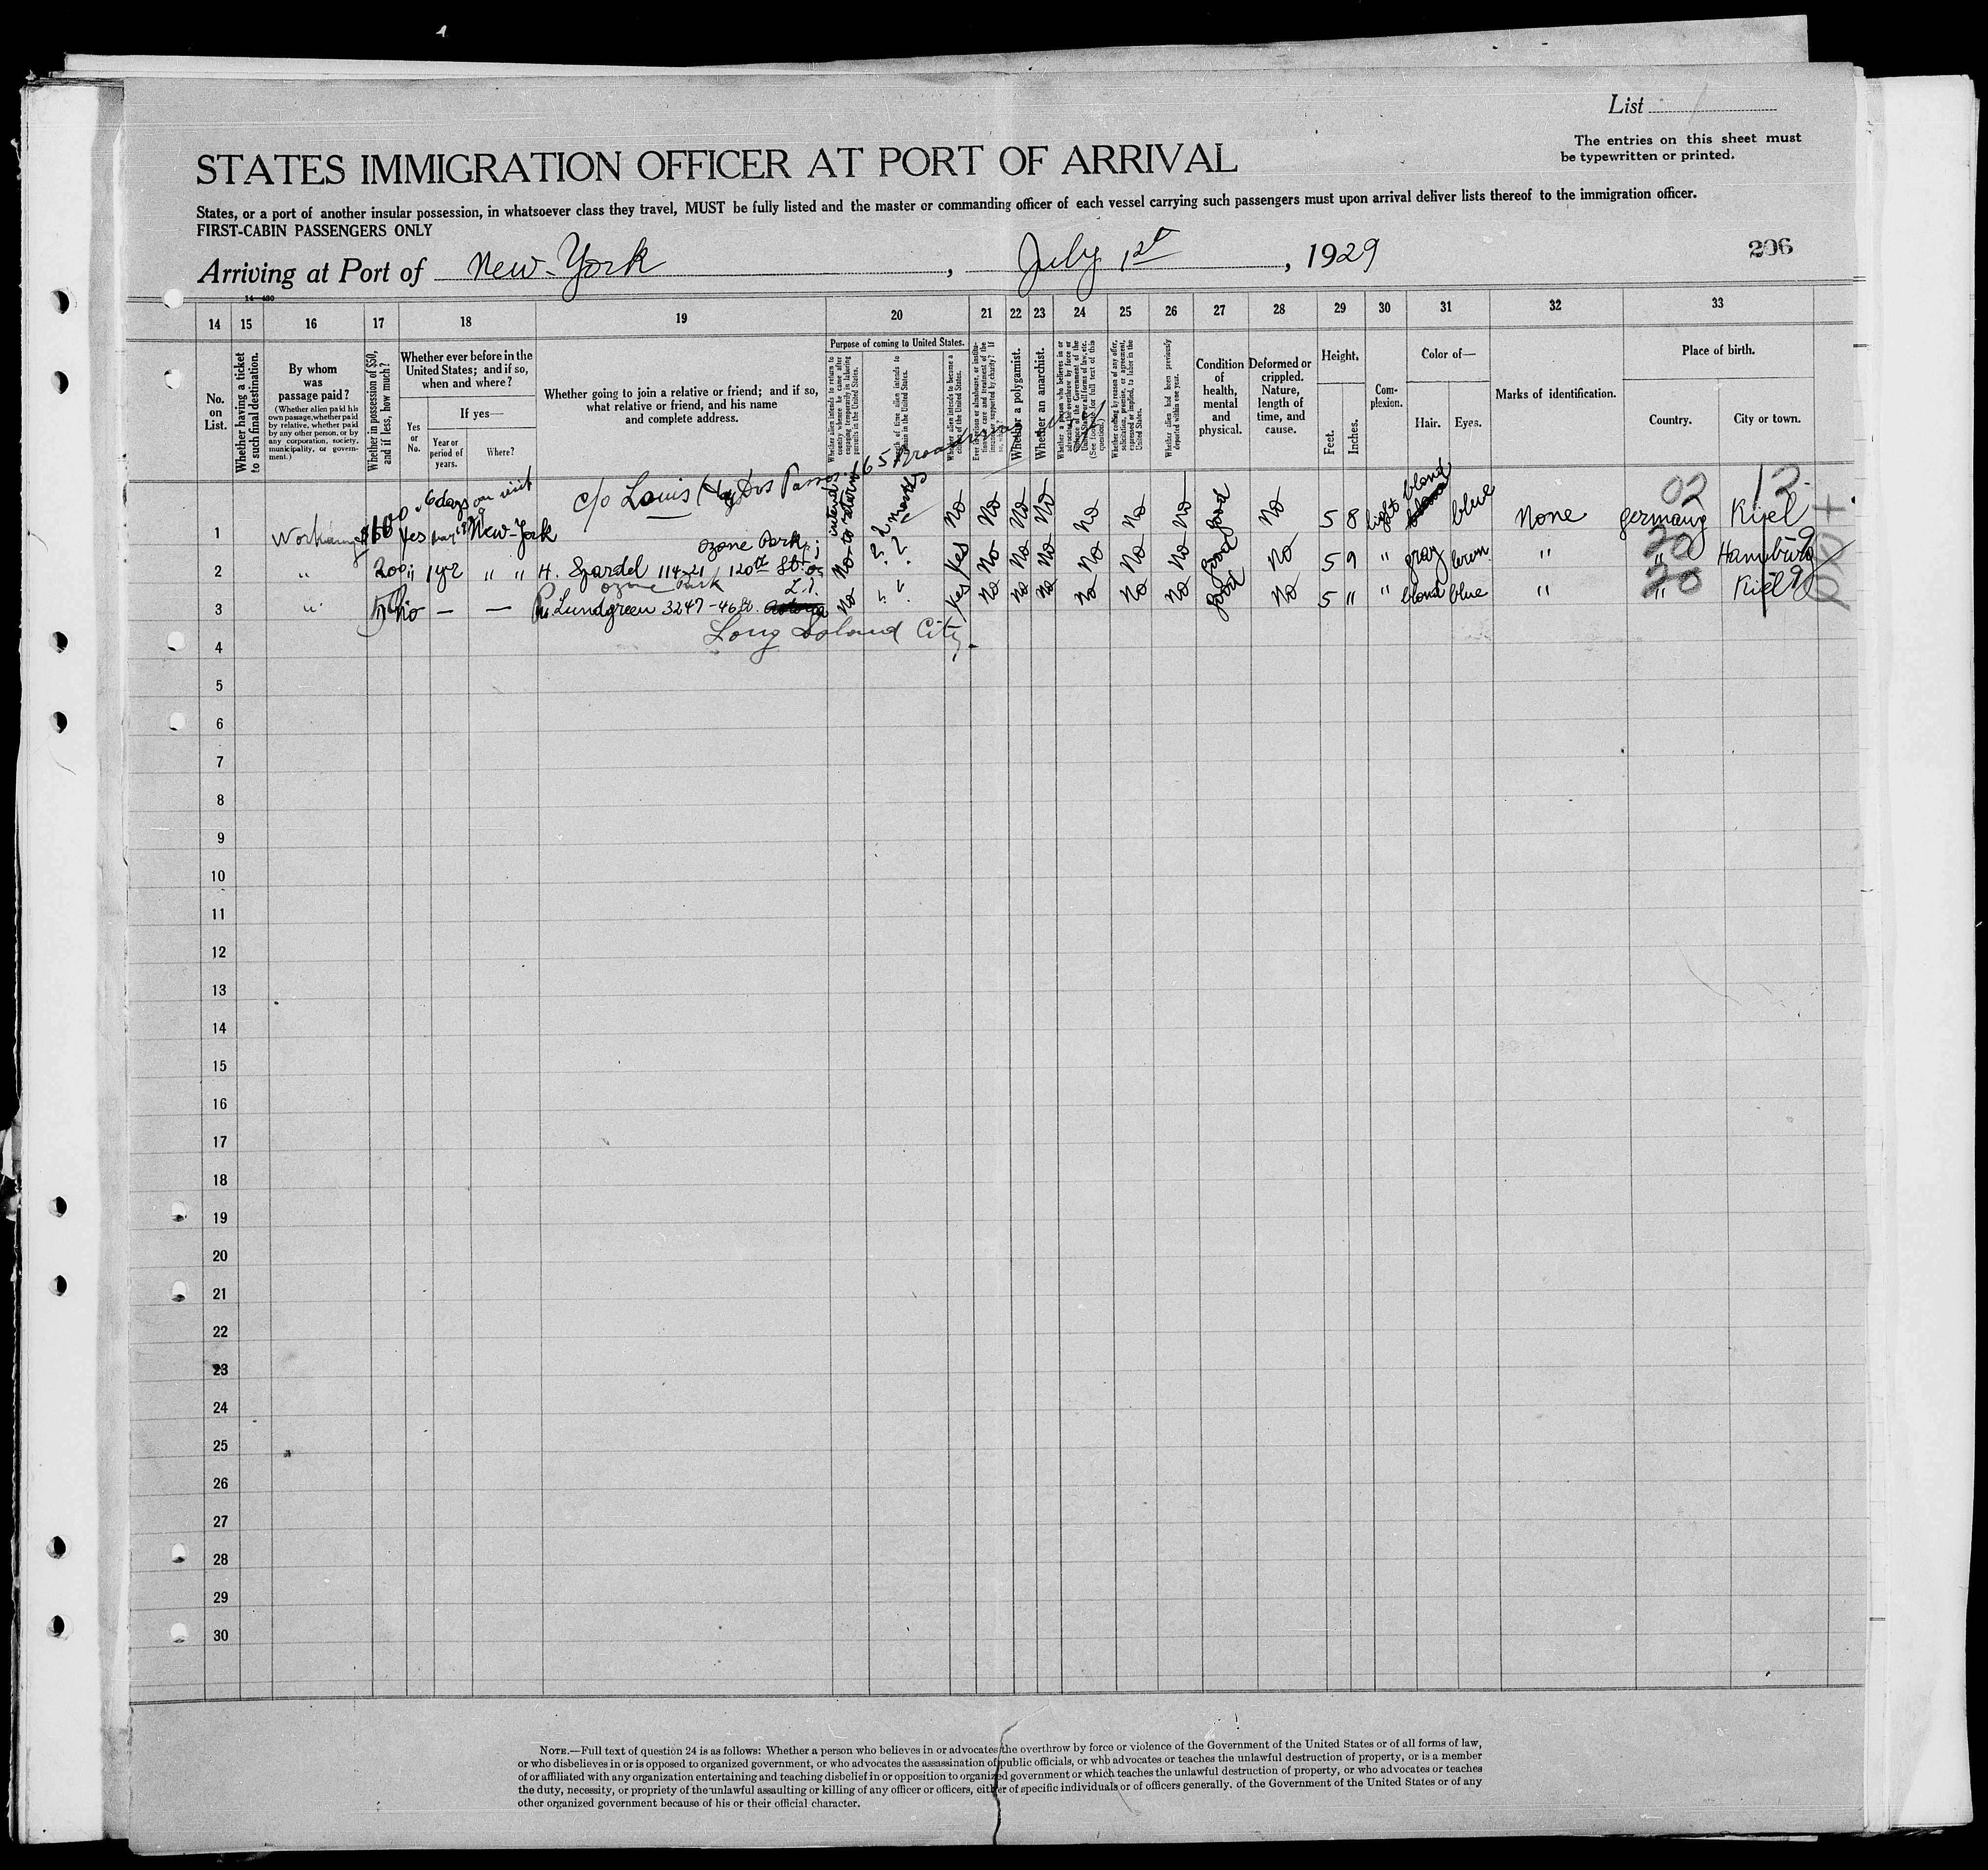 List
The entries on this sheet must
be typewritten or printed.
STATES IMMIGRATION OFFICER AT PORT OF ARRIVAL
States, or a port of another insular possession, in whatsoever class they travel, MUST be fully listed and the master or commanding officer of each vessel carrying such passengers must upon arrival deliver lists thereof to the immigration officer.
FIRST-CABIN PASSENGERS ONLY
Arriving at Port of New-York, July 1st, 1929
206
14—430
14 15 16 17 18 19 20 21 22 23 24 25 26 27 28 29 30 31 32 33
No. on List.
Whether having a ticket to such final destination.
By whom was passage paid?
(Whether alien paid his own passage, whether paid by relative, whether paid by any other person, or by any corporation, society, municipality, or government.)
Whether in possession of $50, and if less, how much?
Whether ever before in the United States; and if so, when and where?
Yes or No.
If yes—
Year or period of years.
Where?
Whether going to join a relative or friend; and if so, what relative or friend, and his name and complete address.
Purpose of coming to United States.
Whether alien intends to return to country whence he came after engaging temporarily in laboring pursuits in the United States.
Length of time alien intends to remain in the United States.
Whether alien intends to become a citizen of the United States.
Whether a polygamist.
Whether an anarchist.
Whether coming by reason of any offer, solicitation, promise, or agreement, expressed or implied, to labor in the United States.
Whether alien had been previously deported within one year.
Condition of health, mental and physical.
Deformed or crippled. Nature, length of time, and cause.
Height.
Feet.
Inches.
Complexion.
Color of—
Hair.
Eyes.
Marks of identification.
Place of birth.
Country.
City or town.
6 days on visit
c/o Louis
65 Broadway
02 12
1 yes New-York intends to return 2 months No No No No No No No good No 5 8 light blond blue None germany Kijel
Ozone Park
20 9
2 " 200 " 1 yr " " H. 114-21 120th St. No ? ? Yes No No No No No No good No 5 9 " gray brown " " Hamburg
Ozone Park L.I.
20 9
3 " no — — Lundgreen 3247-46 St. No " " Yes No No No No No No good No 5 " " blond blue " " Kijel
Long Island City
4
5
6
7
8
9
10
11
12
13
14
15
16
17
18
19
20
21
22
23
24
25
26
27
28
29
30
NOTE.—Full text of question 24 is as follows: Whether a person who believes in or advocates the overthrow by force or violence of the Government of the United States or of all forms of law,
or who disbelieves in or is opposed to organized government, or who advocates the assassination of public officials, or who advocates or teaches the unlawful destruction of property, or is a member
of or affiliated with any organization entertaining and teaching disbelief in or opposition to organized government or which teaches the unlawful destruction of property, or who advocates or teaches
the duty, necessity, or propriety of the unlawful assaulting or killing of any officer or officers, either of specific individuals or of officers generally, of the Government of the United States or of any
other organized government because of his or their official character.